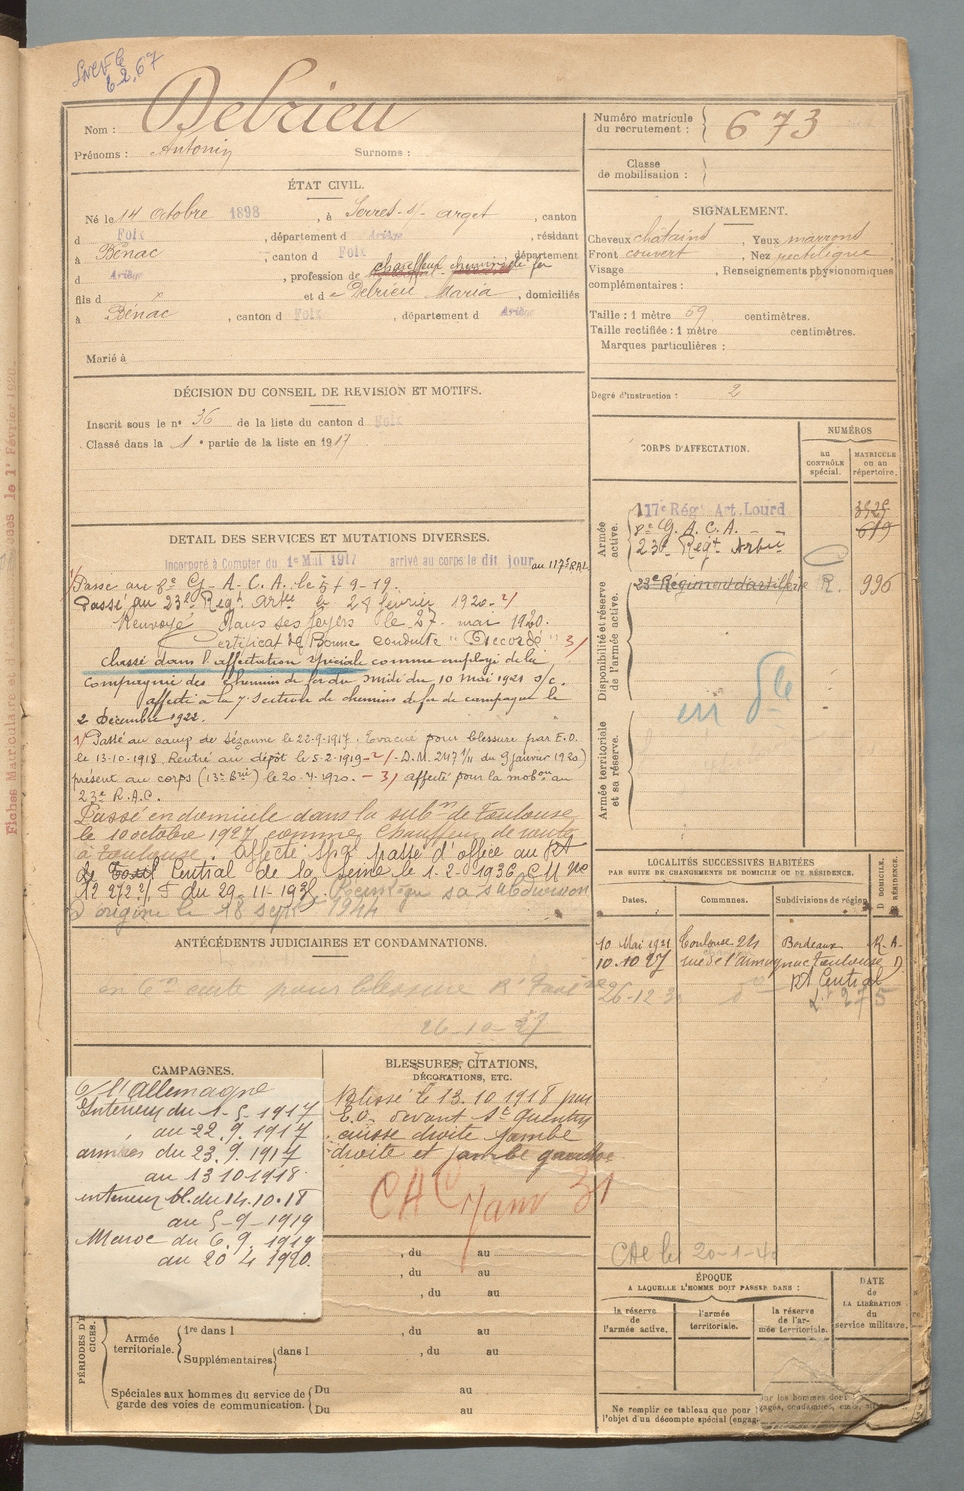 SNCF
Debrieu
Nom :
Prénoms : Antonin Surnoms :
ÉTAT CIVIL.
Né le 14 octobre 1898, à Serres-s/-arget, canton
d Foix, département d Ariège, résidant
à Bénac, canton d Foix département
d Ariège, profession de chauffeur chemins de fer
fils d x et de Debrieu Maria, domiciliés
à Bénac, canton d Foix, département d Ariège
Marié à
DÉCISION DU CONSEIL DE REVISION ET MOTIFS.
Inscrit sous le n° 36 de la liste du canton d Foix
Classé dans la 1e partie de la liste en 1917
DETAIL DES SERVICES ET MUTATIONS DIVERSES.
Incorporé à Compter du 1e Mai 1917 arrivé au corps le dit jour au 117e R.A.L.
1/ Passé au 8e G-A.C.A. le 7-9-19.
Passé au 23e Regt Artie le 28 février 1920. 2/
Renvoyé dans ses foyers le 27 mai 1920.
Certificat de Bonne conduite "Accordé" 3/
Classé dans l'affectation spéciale comme employé de la
Compagnie des chemins de fer du midi du 10 mai 1921 s/c.
affecté à la 7e Section de chemins de fer de campagne le
2 Décembre 1922.
1/ Passé au camp de Sézanne le 22-9-1917. Evacué pour blessure par E.O.
le 13-10-1918. Rentré au dépôt le 5-2-1919 - 2/ - D.M. 2417 1/11 du 9 janvier 1920)
présent au corps (13e Brie) le 20-4-1920. - 3/ affecté pour la mobon au
23e R.A.C.
Passé en domicile dans la subon de Toulouse
le 10 octobre 1927 comme Chauffeur de route
à Toulouse. Affecté Spal passé d'office au Rt
Central de la Seine le 1-2-1936. C M no
du 29-11-193 sa subdivision
d'origine le 18 sept 1944
ANTÉCÉDENTS JUDICIAIRES ET CONDAMNATIONS.
en carte pour blessure
26-10-37
CAMPAGNES.
C/ l'Allemagne
Intérieur du 1-5-1917
au 22.9.1917
armées du 23.9.1917
au 13 10 1918
intérieur bl. du 14.10.18
au 5-9-1919
Maroc du 6.9.1919
au 20 4 1920.
BLESSURES, CITATIONS,
DÉCORATIONS, ETC.
Blessé le 13.10.1918 par
E.O. devant St Quentin
cuisse droite jambe
droite et jambe gauche
CAC Janv 31
, du au
, du au
, du au
PÉRIODES D'E
CICES.
Armée territoriale.
1re dans l , du au
Supplémentaires dans l , du au
Spéciales aux hommes du service de garde des voies de communication.
Du au
Du au
Numéro matricule du recrutement : 673
Classe de mobilisation :
SIGNALEMENT.
Cheveux chatains, Yeux marrons
Front couvert, Nez rectiligne,
Visage , Renseignements physionomiques
complémentaires :
Taille : 1 mètre 59 centimètres.
Taille rectifiée : 1 mètre centimètres.
Marques particulières :
Degré d'instruction : 2
CORPS D'AFFECTATION.
NUMÉROS
au CONTRÔLE spécial.
MATRICULE ou au répertoire.
Armée active.
117e Rég. Art. Lourd
8e G.A.C.A. 619
23e Regt Artie
Disponibilité et réserve de l'armée active.
23e Régiment d'artillerie R. 996
Armée territoriale et sa réserve.
LOCALITÉS SUCCESSIVES HABITÉES
PAR SUITE DE CHANGEMENTS DE DOMICILE OU DE RÉSIDENCE.
Dates. Communes. Subdivisions de région. D DOMICILE. R RÉSIDENCE.
10 Mai 1921 Toulouse 24 Bordeaux R.A.
10.10 27 rue de l'Armagnac Toulouse D.
Rt Central
26-12 3 do
CAC le 20-1-4
ÉPOQUE
A LAQUELLE L'HOMME DOIT PASSER DANS :
la réserve de l'armée active.
l'armée territoriale.
la réserve de l'armée territoriale.
DATE de LA LIBÉRATION du service militaire.
Ne remplir ce tableau que pour
l'objet d'un décompte spécial (engag
Fiches Matriculaires et d'Aff posées le 1er Février 1920